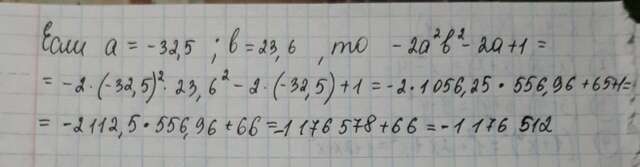 Если a = -32,5 ; b = 23,6 , то - 2a²b² - 2a + 1 =
= -2 · (-32,5)² · 23,6² - 2 · (-32,5) + 1 = -2 · 1056,25 · 556,96 + 65+1=
= -2112,5 · 556,96 + 66 = -1 176 578 + 66 = -1 176 512